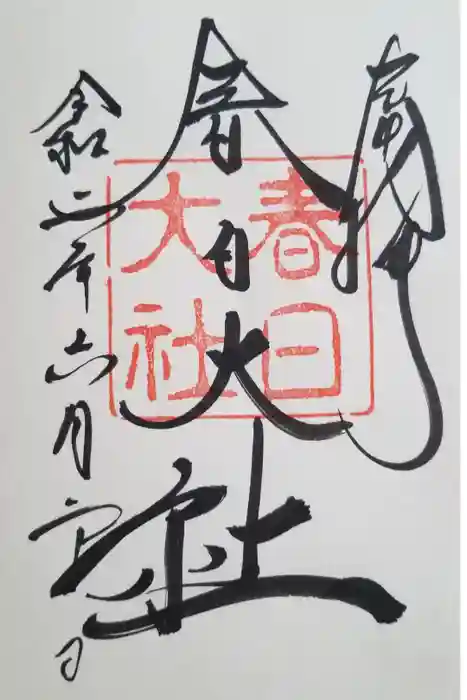 奉拝
春日大社
春日
大社
令和二年六月 日